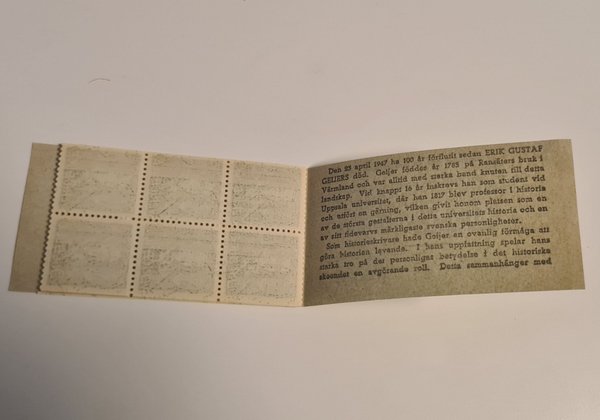 Den 23 april 1947 ha 100 år förflutit sedan ERIK GUSTAF
GEIJERS död. Geijer föddes år 1783 på Ransäters bruk i
Värmland och var alltid med starka band knuten till detta
landskap. Vid knappt 16 år inskrevs han som student vid
Uppsala universitet, där han 1817 blev professor i historia
och utfört en gärning, vilken givit honom platsen som en
av de största gestalterna i detta universitets historia och en
av sitt tidevarvs märkligaste svenska personligheter.
Som historieskrivare hade Geijer en ovanlig förmåga att
göra historien levande. I hans uppfattning spelar hans
starka tro på det personligas betydelse i det historiska
skeendet en avgörande roll. Detta sammanhänger med